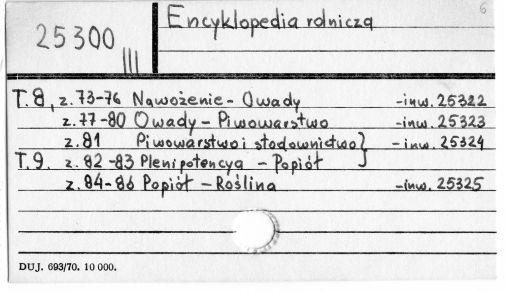 6
25300
III
Encyklopedia rolnicza
T.8, z.73-76 Nawożenie - Owady -inw. 25322
z.77-80 Owady - Piwowarstwo -inw. 25323
z.81 Piwowarstwo i słodownictwo} - inw. 25324
T.9. z.82-83 Plenipotencya - Popiół
z.84-86 Popiół - Roślina -inw. 25325
DUJ. 693/70. 10 000.